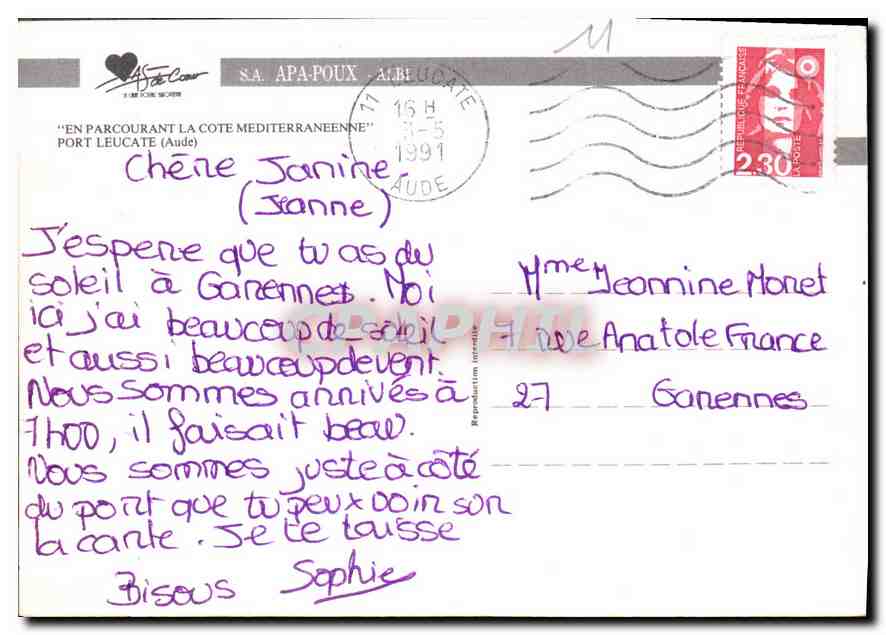 11
AS de Coeur
S.A. APA-POUX - ALBI
11 LEUCATE
16 H
3-5
1991
AUDE
REPUBLIQUE FRANÇAISE
LA POSTE
2,30
"EN PARCOURANT LA COTE MEDITERRANEENNE"
PORT LEUCATE (Aude)
Chère Janine.
(Jeanne)
J'espere que tu as du
soleil à Garennes. Moi
ici j'ai beaucoup de soleil
et aussi beaucoup de vent.
Nous sommes arrivés à
7h00, il faisait beau.
Nous sommes juste à côté
du port que tu peux voir sur
la carte. Je te laisse
Bisous Sophie
Reproduction interdite
Mme Jeannine Monet
7 rue Anatole France
27 Garennes